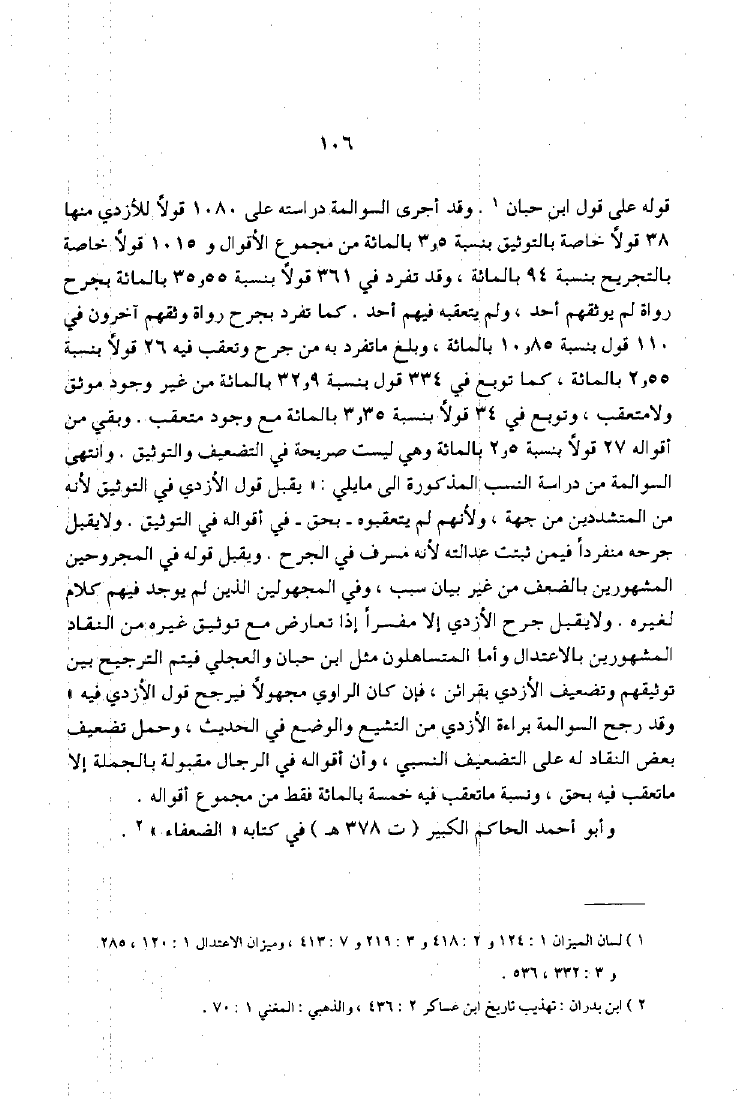 ١٠٦
قوله على قول ابن حبان ١ . وقد أجرى السوالمة دراسته على ١٠٨٠ قولاً للأزدي منها
٣٨ قولاً خاصة بالتوثيق بنسبة ٣,٥ بالمائة من مجموع الأقوال و ١٠١٥ قولاً خاصة
بالتجريح بنسبة ٩٤ بالمائة ، وقد تفرد في ٣٦١ قولاً بنسبة ٣٥,٥٥ بالمائة بجرح
رواة لم يوثقهم أحد ، ولم يتعقبه فيهم أحد . كما تفرد بجرح رواة وثقهم آخرون في
١١٠ قول بنسبة ١٠,٨٥ بالمائة ، وبلغ ماتفرد به من جرح وتعقب فيه ٢٦ قولاً بنسبة
٢,٥٥ بالمائة ، كما توبع في ٣٣٤ قول بنسبة ٣٢,٩ بالمائة من غير وجود موثق
ولامتعقب ، وتوبع في ٣٤ قولاً بنسبة ٣,٣٥ بالمائة مع وجود متعقب . وبقي من
أقواله ٢٧ قولاً بنسبة ٢,٥ بالمائة وهي ليست صريحة في التضعيف والتوثيق . وانتهى
السوالمة من دراسة النسب المذكورة الى مايلي : « يقبل قول الأزدي في التوثيق لأنه
من المتشددين من جهة ، ولأنهم لم يتعقبوه ـ بحق ـ في أقواله في التوثيق . ولايقبل
جرحه منفرداً فيمن ثبتت عدالته لأنه مسرف في الجرح . ويقبل قوله في المجروحين
المشهورين بالضعف من غير بيان سبب ، وفي المجهولين الذين لم يوجد فيهم كلام
لغيره . ولايقبل جرح الأزدي إلا مفسراً إذا تعارض مع توثيق غيره من النقاد
المشهورين بالاعتدال وأما المتساهلون مثل ابن حبان والعجلي فيتم الترجيح بين
توثيقهم وتضعيف الأزدي بقرائن ، فإن كان الراوي مجهولاً فيرجح قول الأزدي فيه »
وقد رجح السوالمة براءة الأزدي من التشيع والوضع في الحديث ، وحمل تضعيف
بعض النقاد له على التضعيف النسبي ، وأن أقواله في الرجال مقبولة بالجملة إلا
ماتعقب فيه بحق ، ونسبة ماتعقب فيه خمسة بالمائة فقط من مجموع أقواله .
وأبو أحمد الحاكم الكبير ( ت ٣٧٨ هـ ) في كتابه « الضعفاء » ٢ .
١ ) لسان الميزان ١ : ١٢٤ و ٢ : ٤١٨ و ٣ : ٢١٩ و ٧ : ٤١٣ ، وميزان الاعتدال ١ : ١٢٠ ، ٢٨٥
و ٣ : ٣٣٢ ، ٥٣٦ .
٢ ) ابن بدران : تهذيب تاريخ ابن عساكر ٢ : ٤٣٦ ، والذهبي : المغني ١ : ٧٠ .